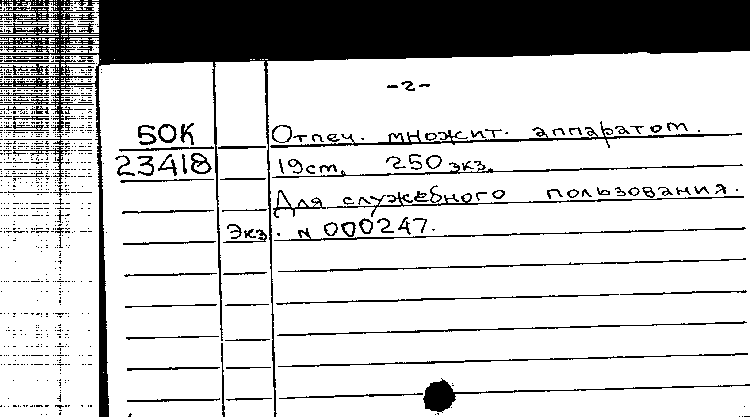 -2-
БОК Отпеч. множит. аппаратом.
23418 19cm. 250 экз.
Для служебного пользования.
Экз. N 000247.